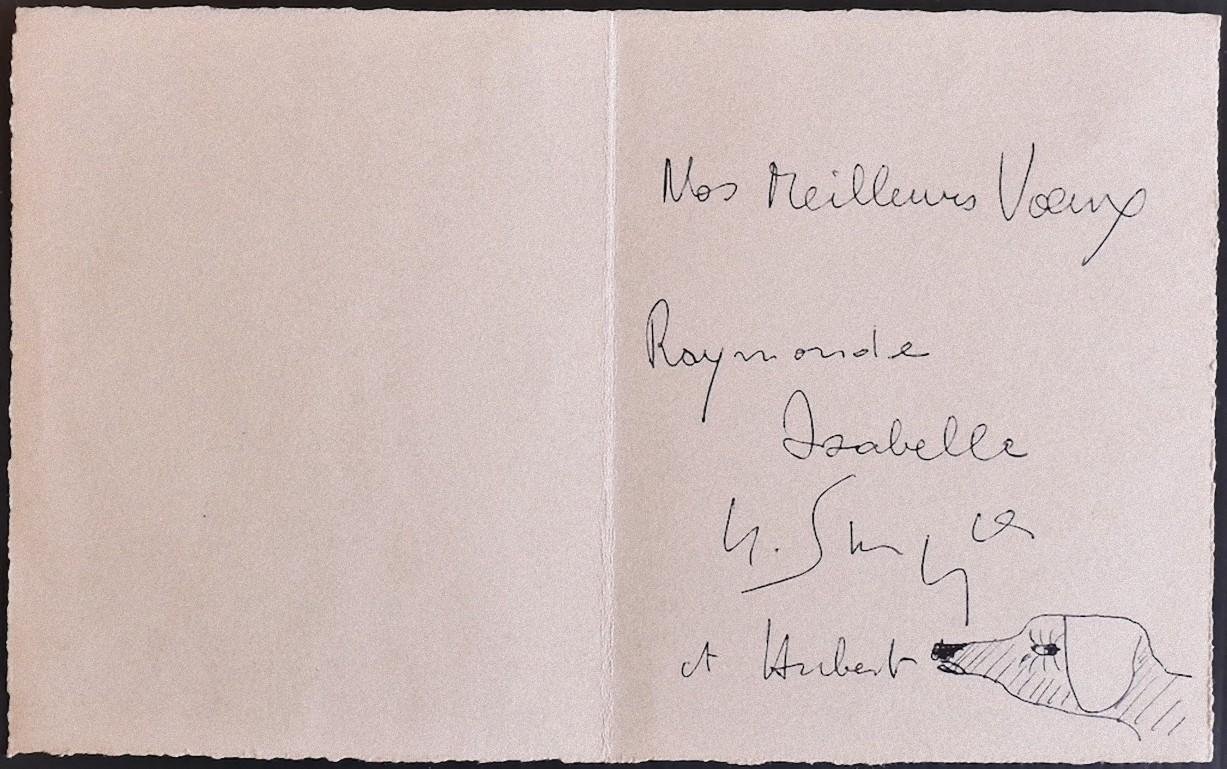 Nos Meilleurs Vœux
Raymonde
Isabelle
et Hubert